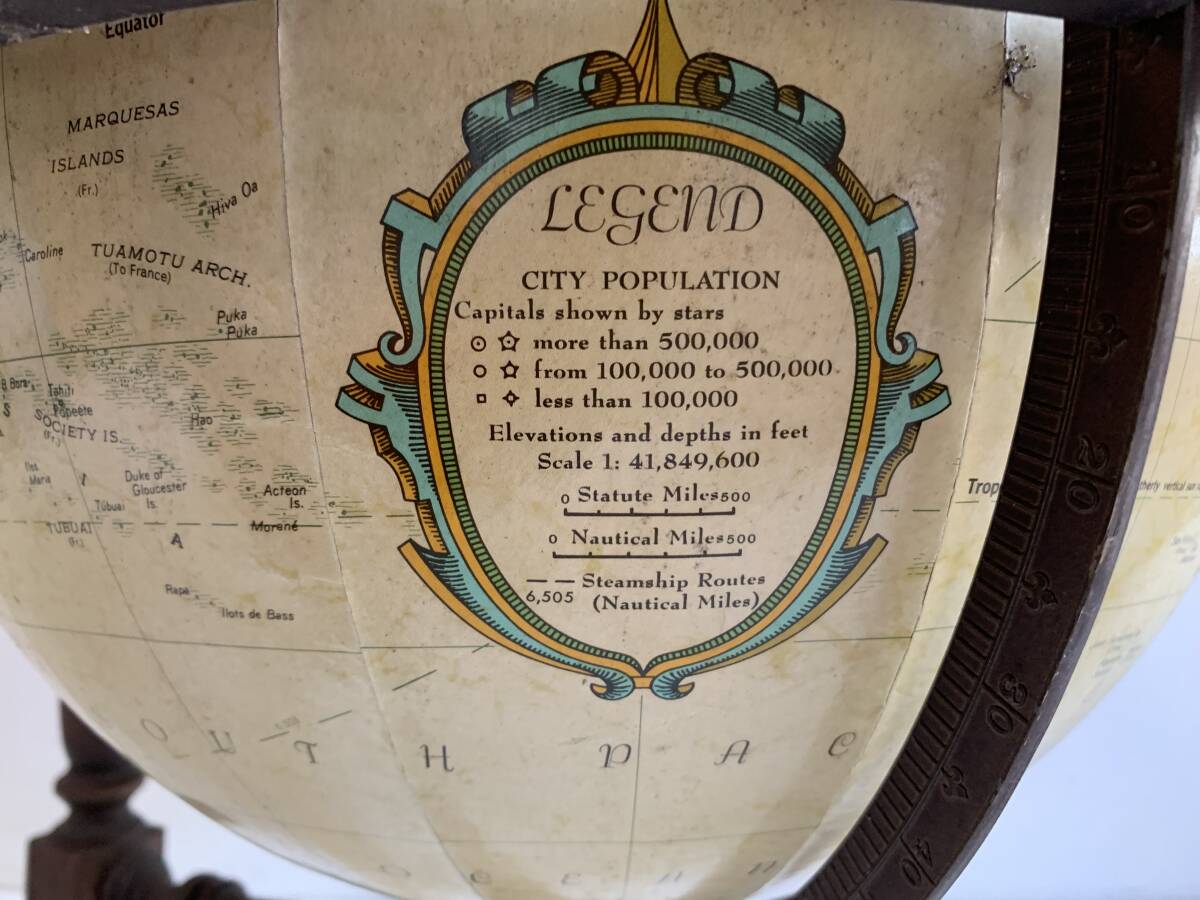 Equator
MARQUESAS
ISLANDS
(Fr.)
Hiva Oa
Caroline
TUAMOTU ARCH.
(To France)
Puka
Puka
Tahiti
Papeete
SOCIETY IS.
(Fr.)
Hao
Duke of
Gloucester
Is.
Acteon
Is.
Tubuai
TUBUAI
(Fr.)
Morané
A
Rapa
Ilots de Bass
LEGEND
CITY POPULATION
Capitals shown by stars
more than 500,000
from 100,000 to 500,000
less than 100,000
Elevations and depths in feet
Scale 1: 41,849,600
0 Statute Miles 500
0 Nautical Miles 500
— — Steamship Routes
6,505 (Nautical Miles)
Trop
OUTH PAC
OCEAN
10
20
30
40